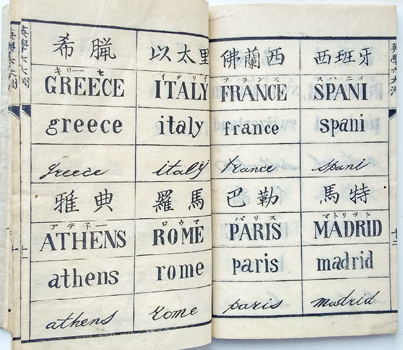 希臘
キリーセ
GREECE
greece
greece
雅典
アテネー
ATHENS
athens
athens
以太里
イタリイ
ITALY
italy
italy
羅馬
ロウマ
ROME
rome
rome
佛蘭西
フランス
FRANCE
france
france
巴勒
パリス
PARIS
paris
paris
西班牙
スパニィ
SPANI
spani
spani
馬特
マトリット
MADRID
madrid
madrid